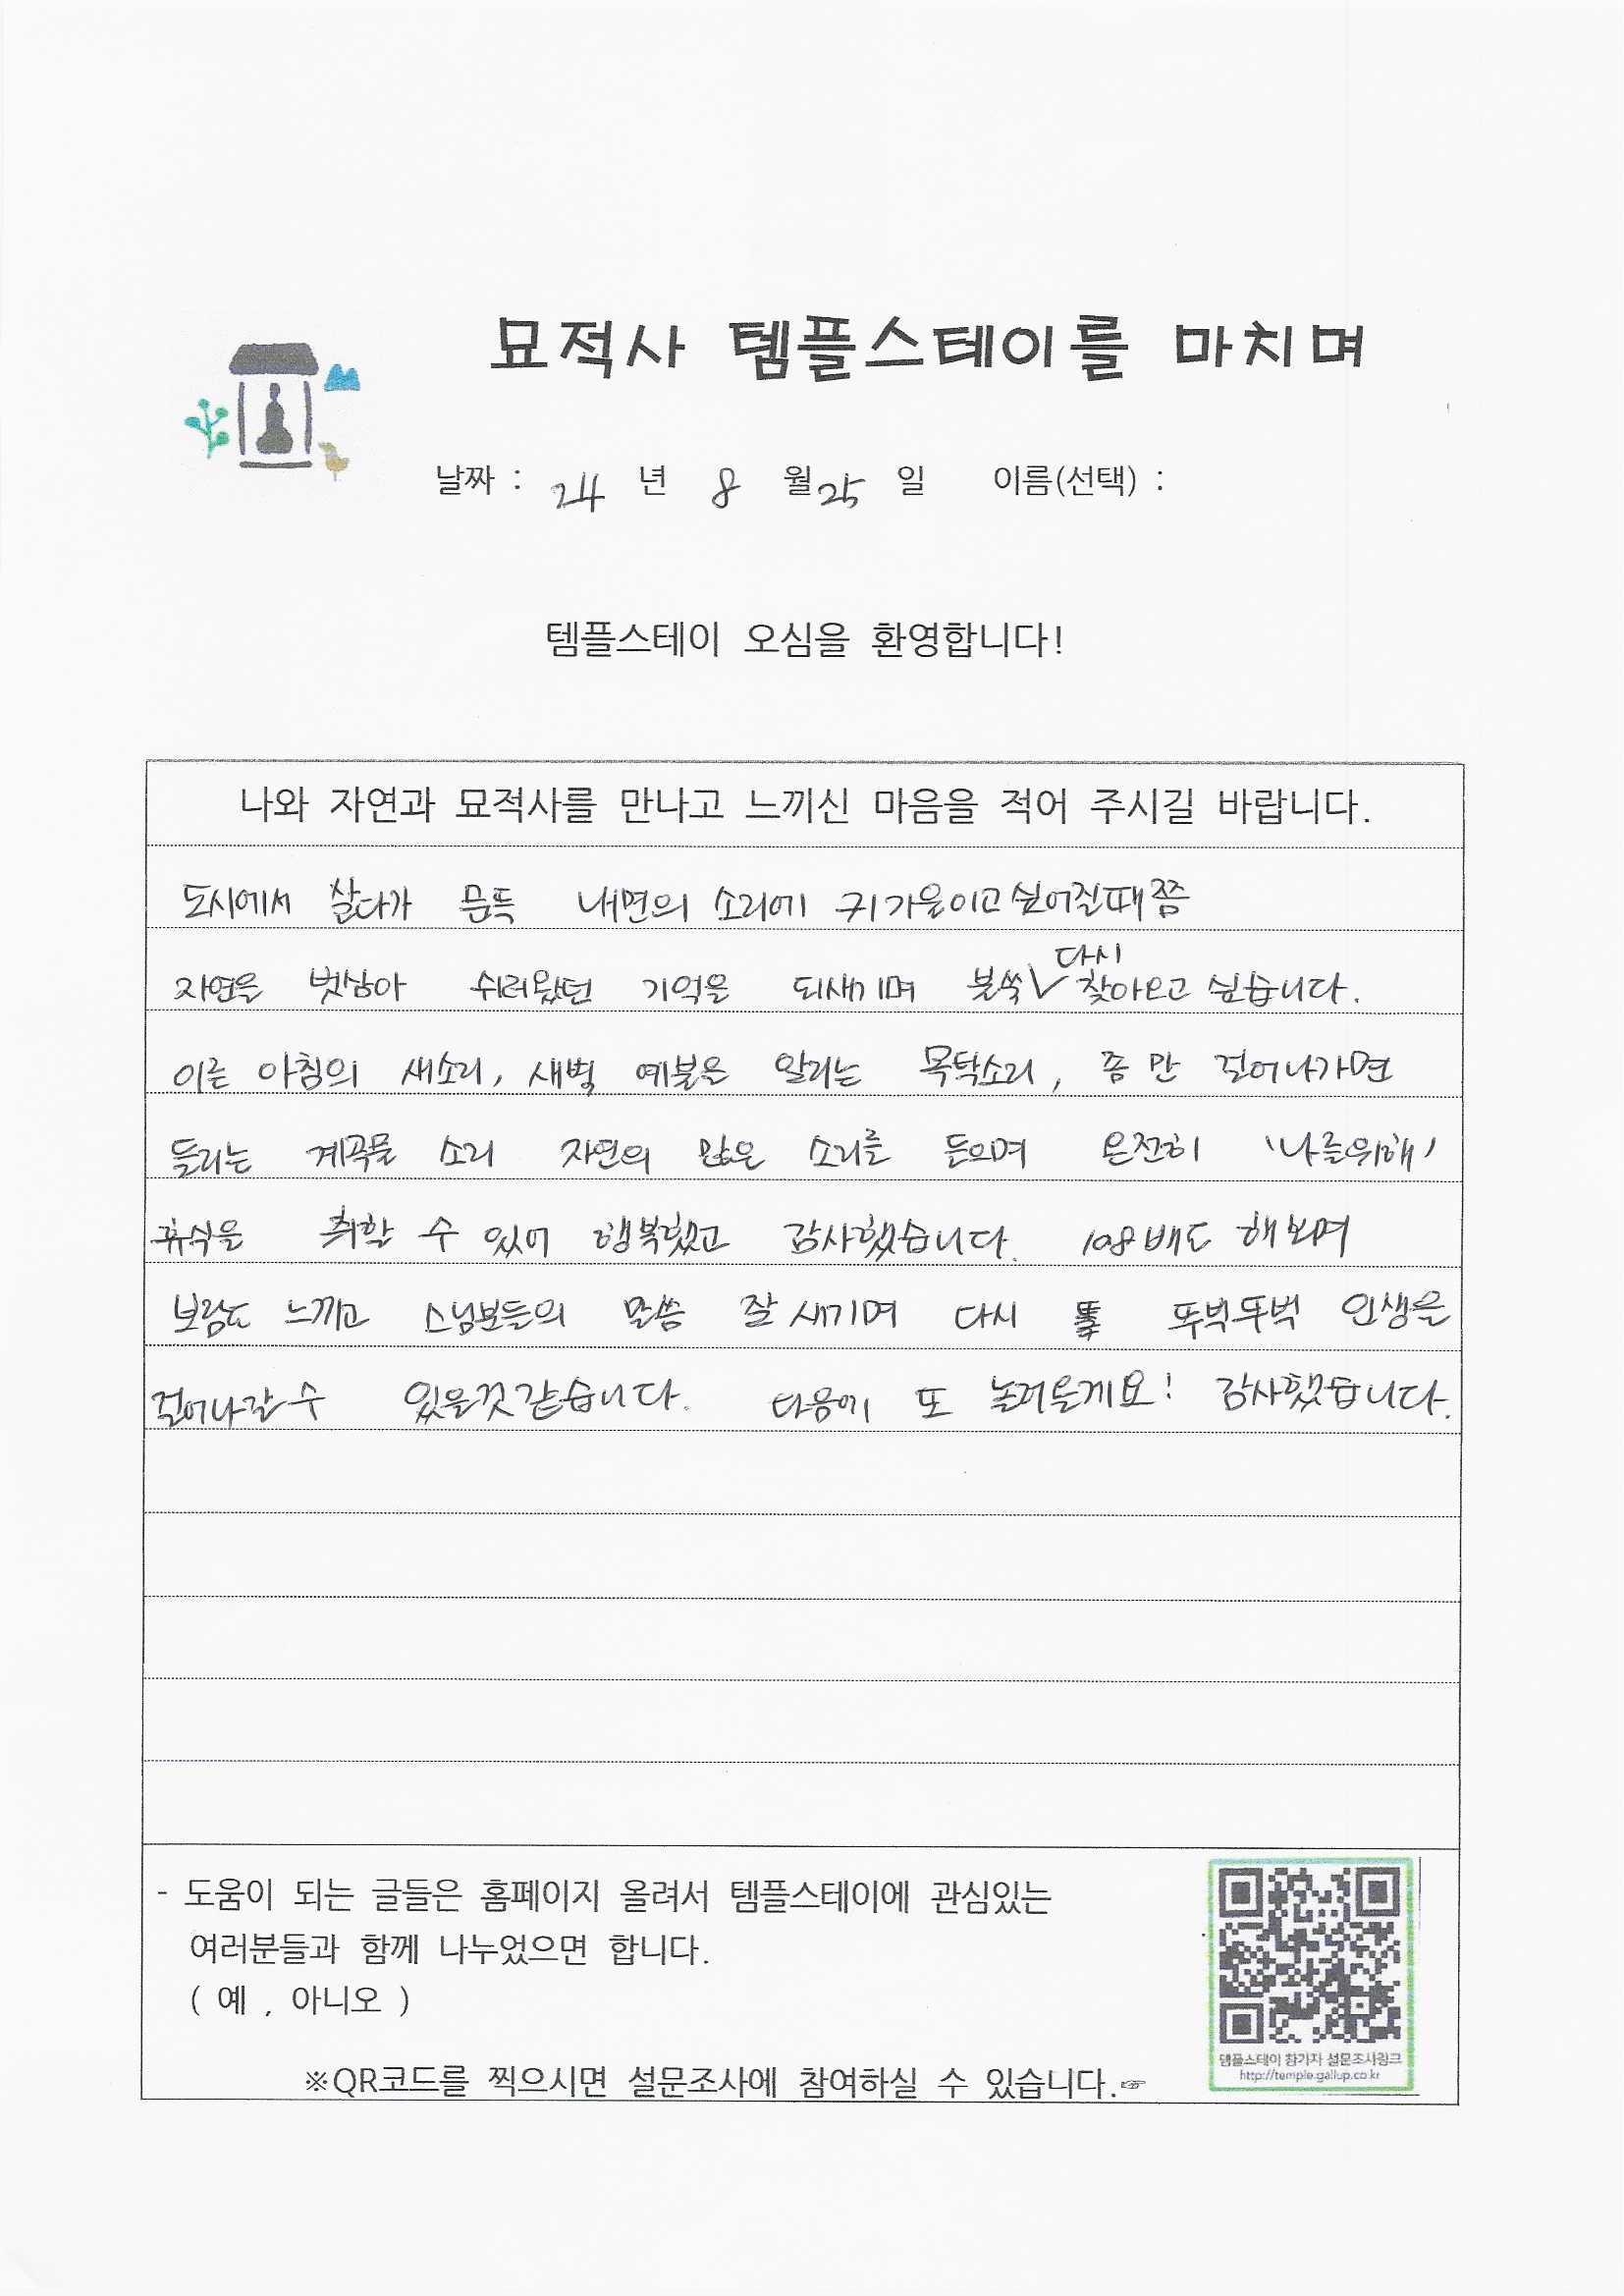 묘적사 템플스테이를 마치며
날짜 : 24 년 8 월 25 일 이름(선택) :
템플스테이 오심을 환영합니다!
나와 자연과 묘적사를 만나고 느끼신 마음을 적어 주시길 바랍니다.
도시에서 살다가 문득 내면의 소리에 귀 기울이고 싶어질때쯤
다시
자연을 벗삼아 쉬러왔던 기억을 되새기며 불쑥 찾아오고 싶습니다.
이른 아침의 새소리, 새벽 예불을 알리는 목탁소리, 좀만 걸어나가면
들리는 계곡물 소리 자연의 많은 소리를 듣으며 온전히 '나를위해'
휴식을 취할 수 있어 행복했고 감사했습니다. 108배도 해보며
보람도 느끼고 스님분들의 말씀 잘 새기며 다시 뚜벅뚜벅 인생을
걸어나갈 수 있을것같습니다. 다음에 또 놀러올게요! 감사했습니다.
- 도움이 되는 글들은 홈페이지 올려서 템플스테이에 관심있는
여러분들과 함께 나누었으면 합니다.
( 예 , 아니오 )
템플스테이 참가자 설문조사링크
http://temple.gallup.co.kr
※QR코드를 찍으시면 설문조사에 참여하실 수 있습니다.☞